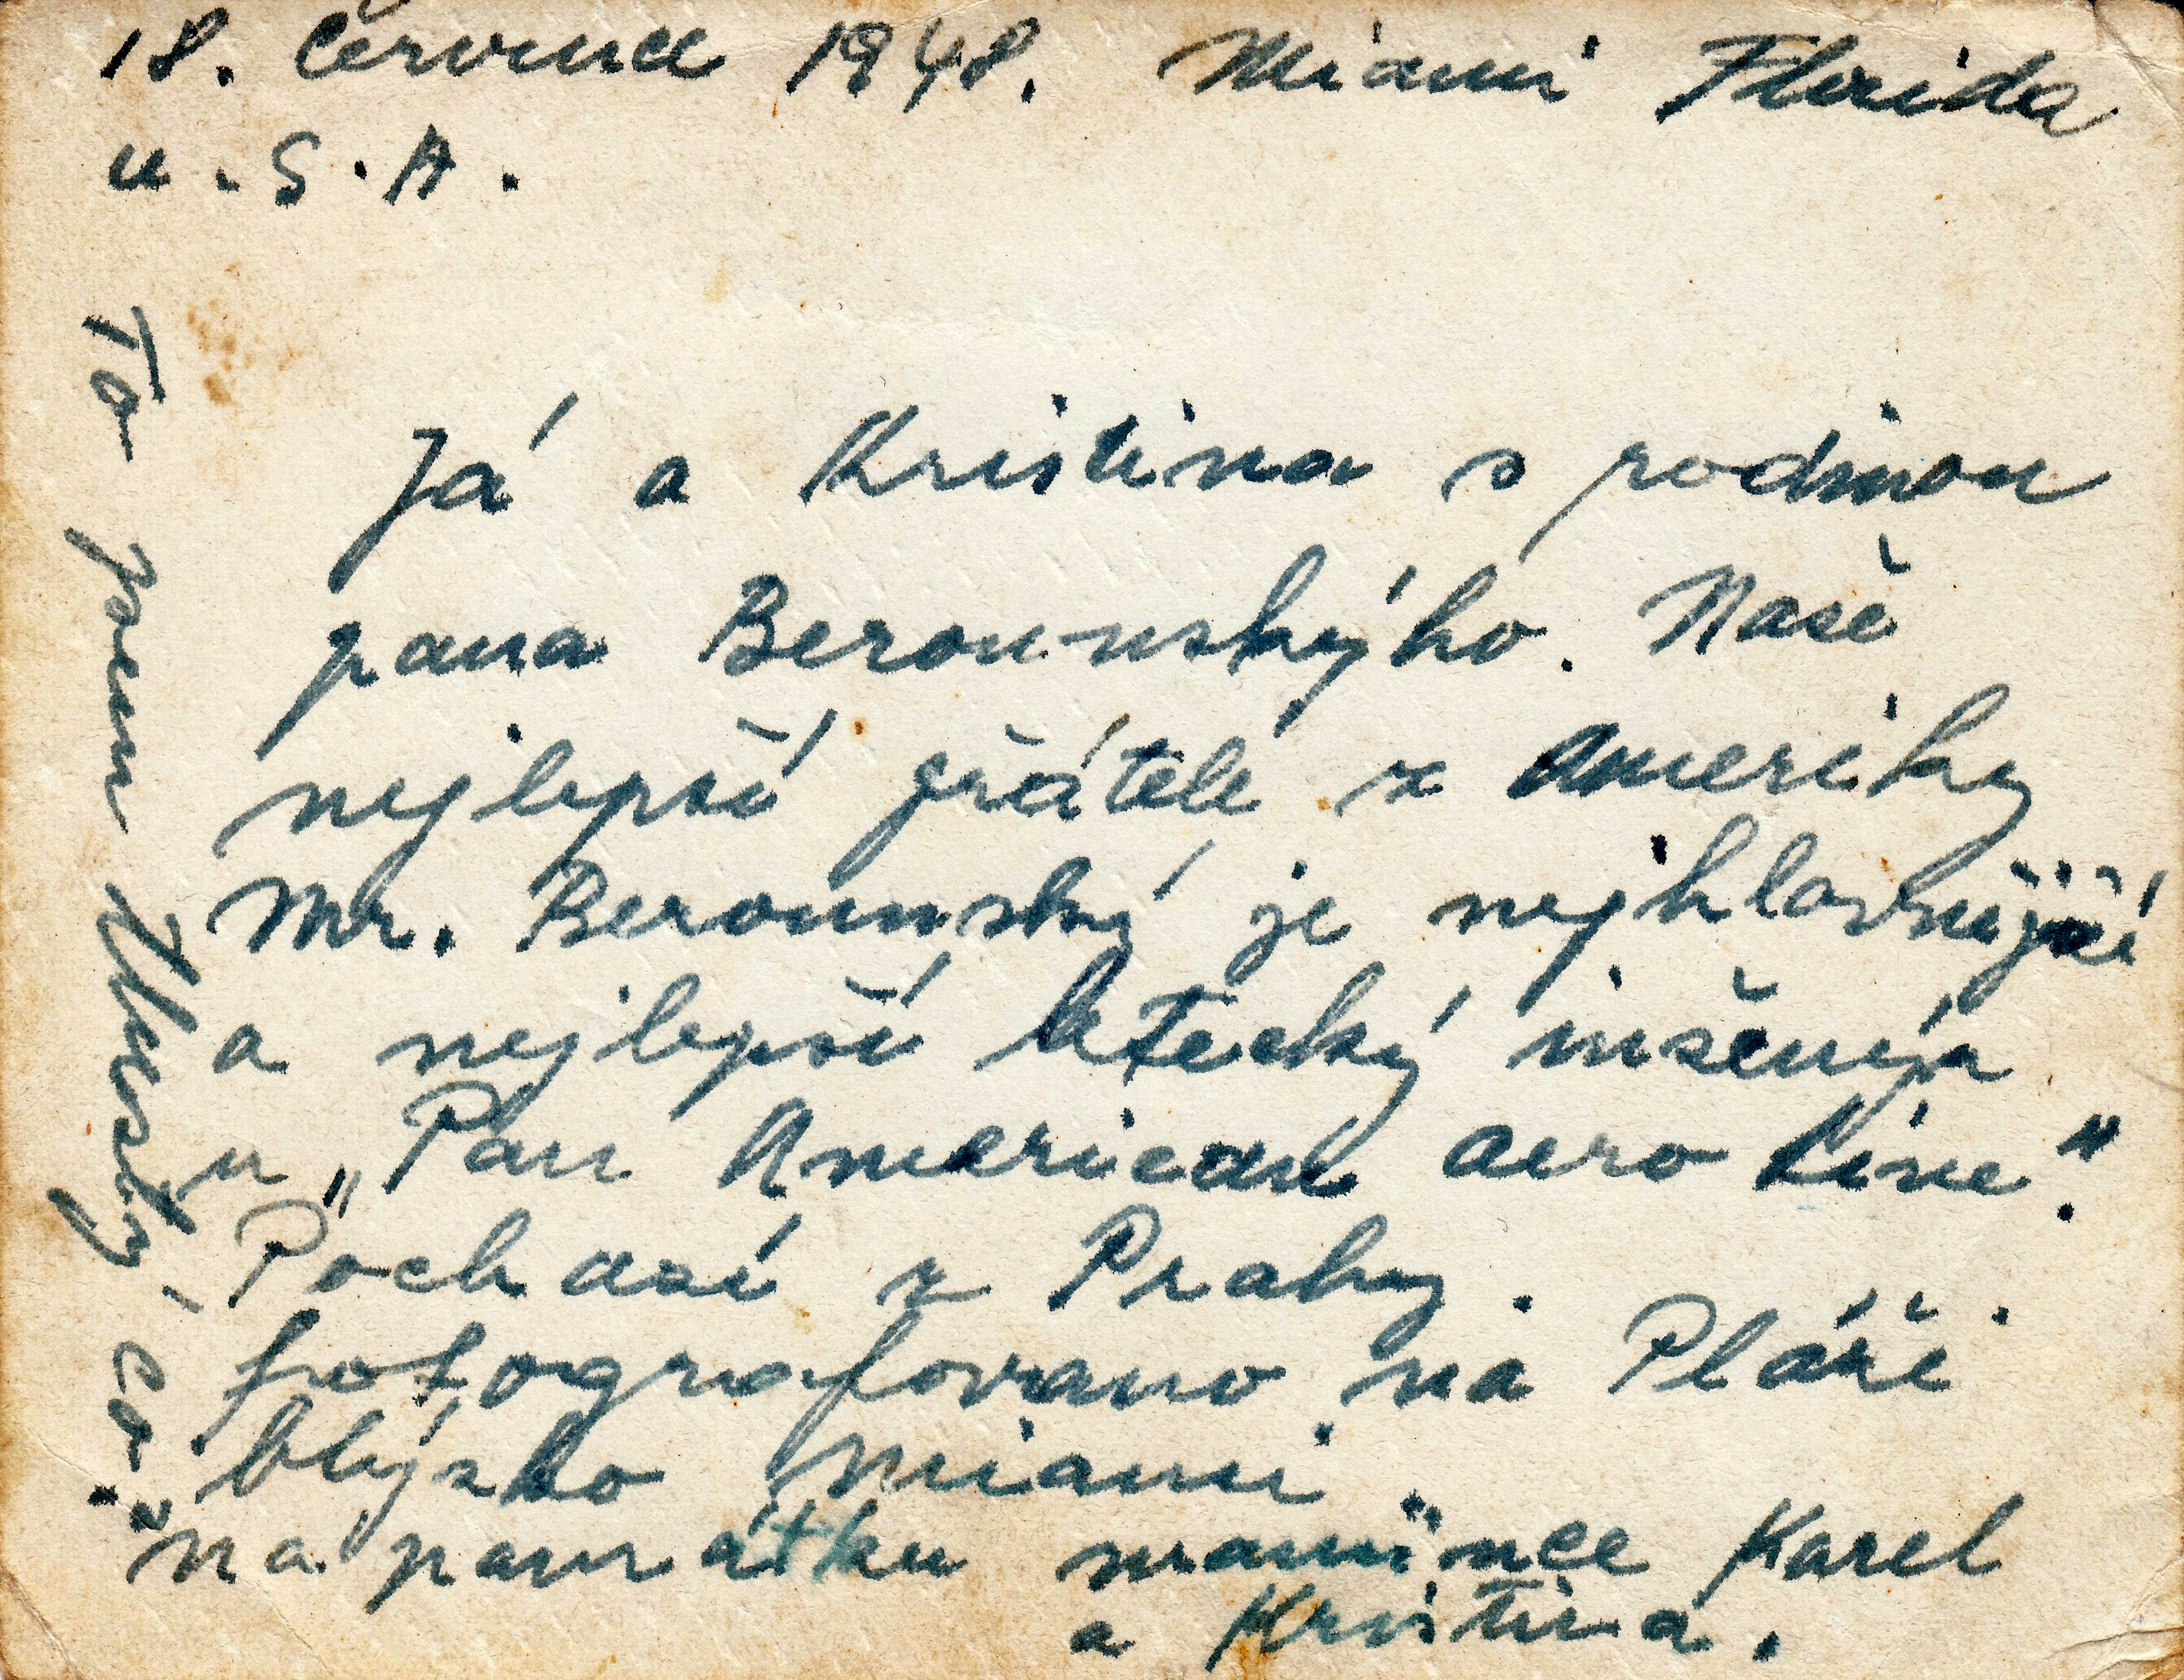 18. července 1948. Miami Florida
U.S.A.
Já a Kristina s rodinou
pana Berounskýho. Naše
nejlepší přátelé z Ameriky
Mr. Berounský je nejhlavnější
a nejlepší letecký inšenýr
u „Pan American aero Line".
Pochazí z Prahy.
fotografovano na Pláži
blýzko Miami.
na památku mamince Karel
a Kristina.
To jsem tlustý, co.